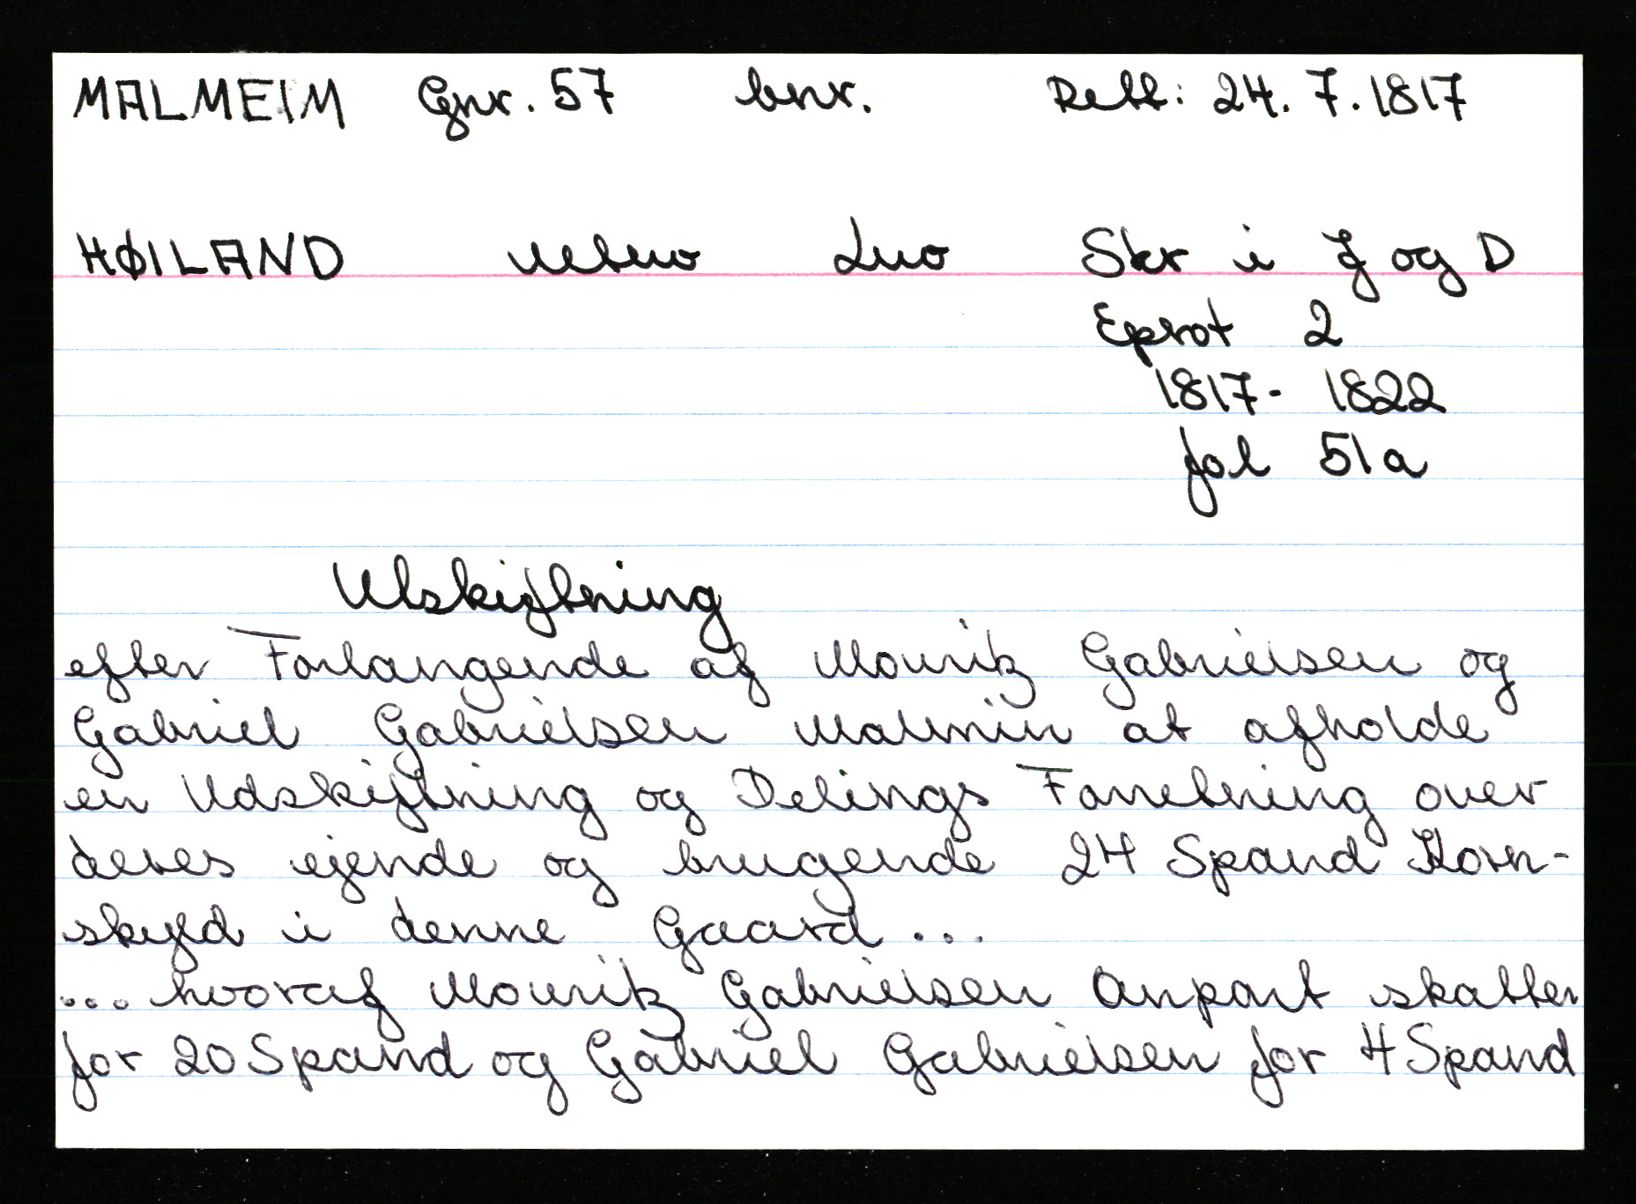 MALMEIM Gnr. 57 bnr. Rett: 24. 7. 1817
HØILAND Skr i J og D
Eprot 2
1817 - 1822
fol 51a
Utskiftning
efter Forlangende af Mouritz Gabrielsen og
Gabriel Gabrielsen Malmin at afholde
en Udskiftning og Delings Forretning over
deres ejende og brugende 24 Spand Korn-
skyld i denne Gaard ...
... hvoraf Mouritz Gabrielsen Anpart skatter
for 20 Spand og Gabriel Gabrielsen for 4 Spand